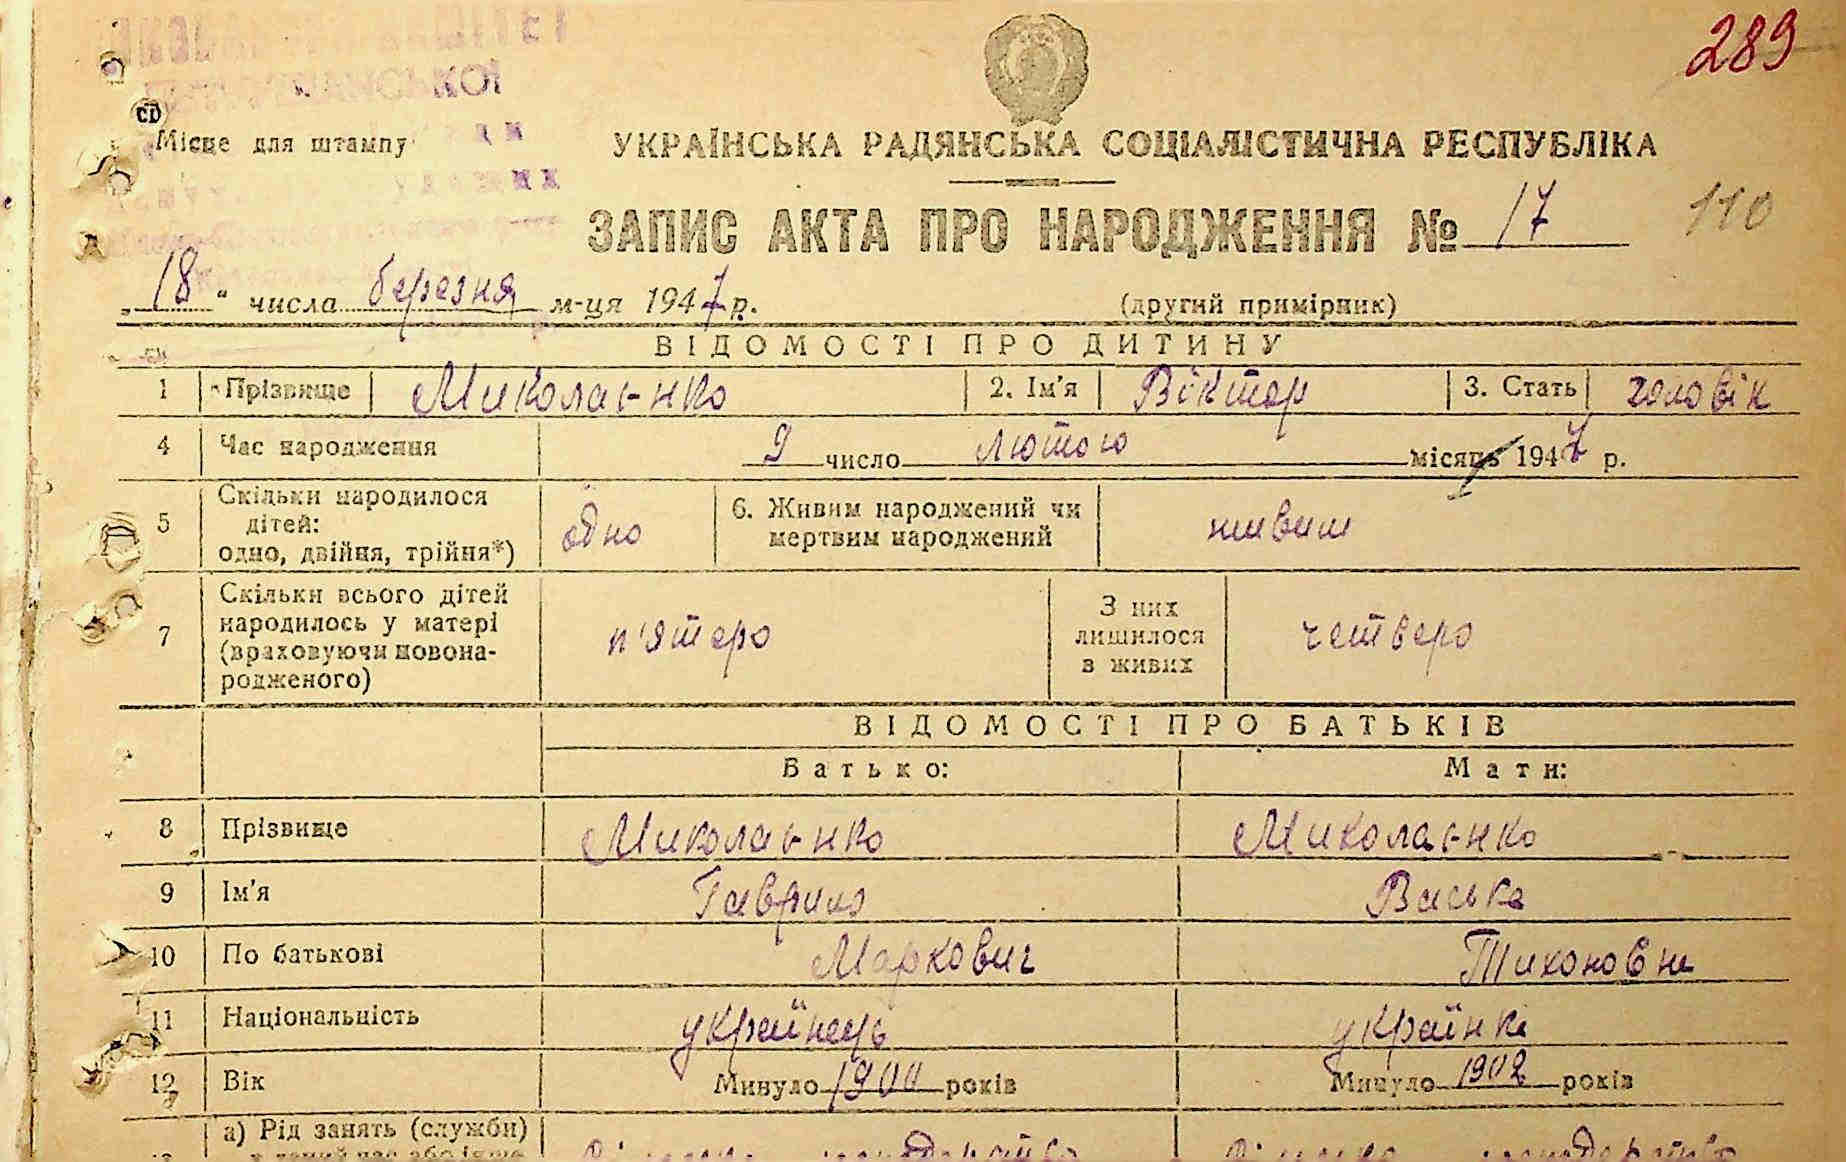 289
Місце для штампу
УКРАЇНСЬКА РАДЯНСЬКА СОЦІАЛІСТИЧНА РЕСПУБЛІКА
ЗАПИС АКТА ПРО НАРОДЖЕННЯ № 17 110
„18“ числа березня м-ця 1947 р. (другий примірник)
ВІДОМОСТІ ПРО ДИТИНУ
1 Прізвище Миколаєнко 2. Ім'я Віктор 3. Стать чоловік
4 Час народження 9 число лютого місяць 1947 р.
5 Скільки народилося дітей: одно, двійня, трійня*) одно 6. Живим народжений чи мертвим народжений живим
7 Скільки всього дітей народилось у матері (враховуючи новонародженого) п'ятеро З них лишилося в живих четверо
ВІДОМОСТІ ПРО БАТЬКІВ
Батько: Мати:
8 Прізвище Миколаєнко Миколаєнко
9 Ім'я Гаврило Васька
10 По батькові Маркович Тихоновна
11 Національність українець українка
12 Вік Минуло 1900 років Минуло 1902 років
а) Рід занять (служби)